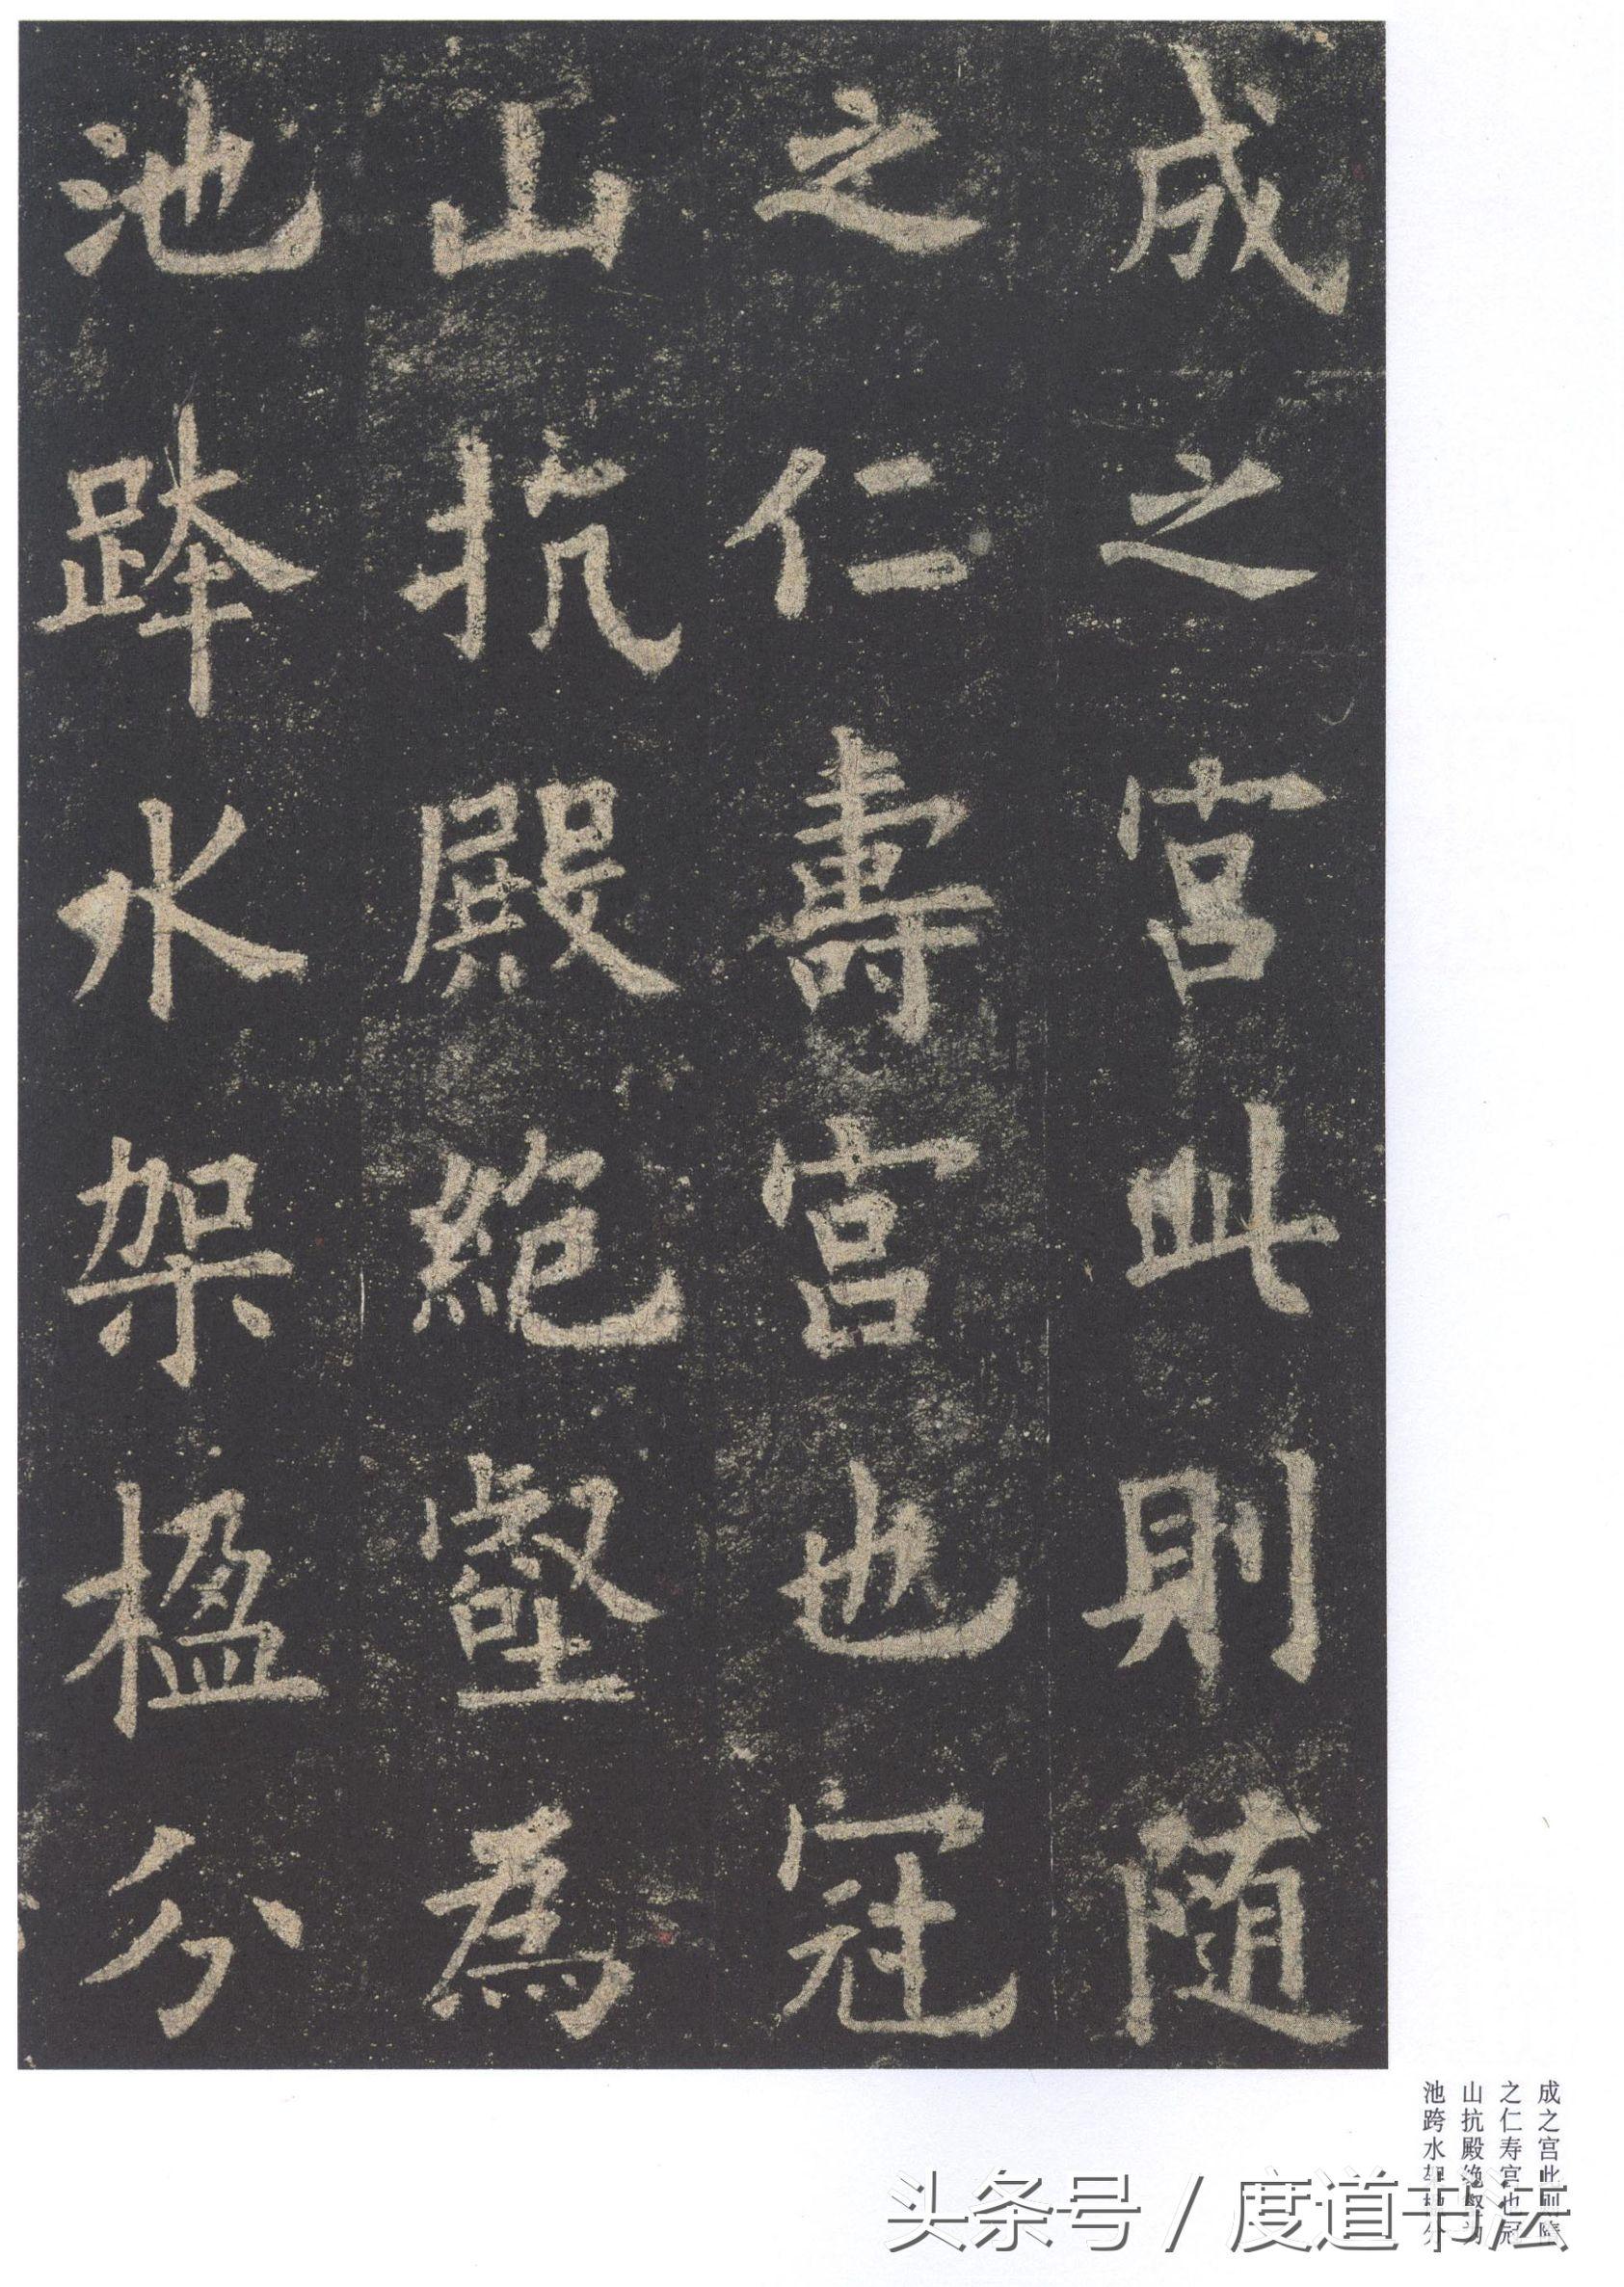 成之宫此則随
之仁壽宫也冠
山抗殿絶壑為
池跨水架楹分
成之宫此则随
之仁寿宫也冠
山抗殿绝壑为
池跨水架楹分
头条号 / 度道书法